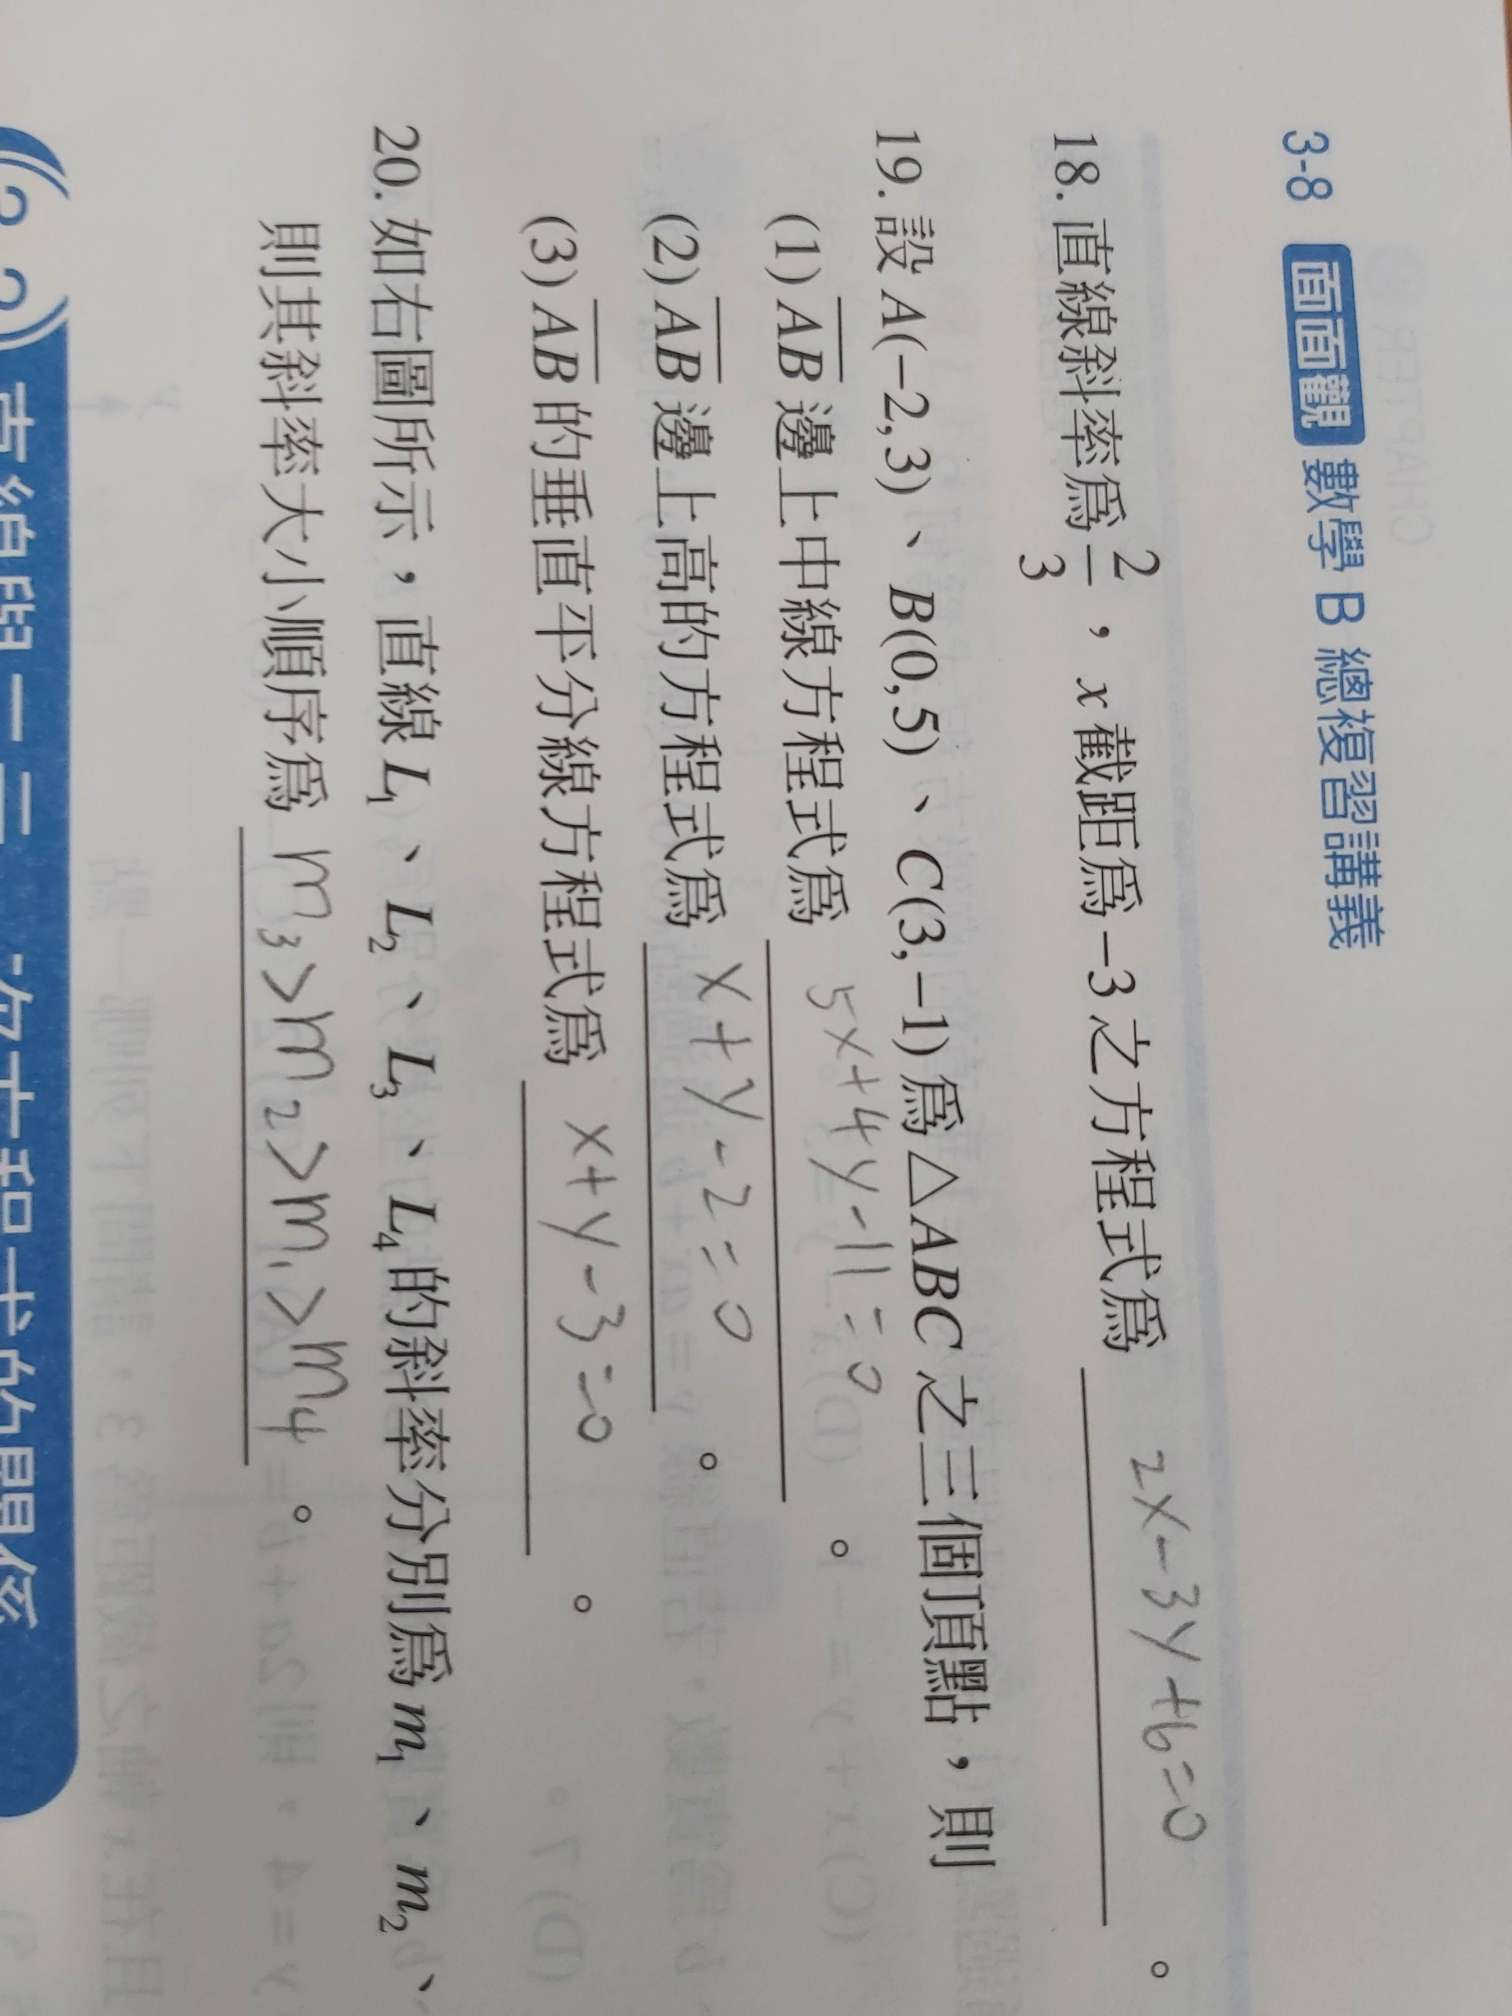 3-8 面面觀 數學 B 總複習講義
18. 直線斜率為 2/3，x 截距為 -3 之方程式為 2x-3y+6=0 。
19. 設 A(-2,3)、B(0,5)、C(3,-1) 為 △ABC 之三個頂點，則
(1) AB 邊上中線方程式為 5x+4y-11=0 。
(2) AB 邊上高的方程式為 x+y-2=0 。
(3) AB 的垂直平分線方程式為 x+y-3=0 。
20. 如右圖所示，直線 L1、L2、L3、L4 的斜率分別為 m1、m2、
則其斜率大小順序為 m3>m2>m1>m4 。
直線與二元一次方程式的關係